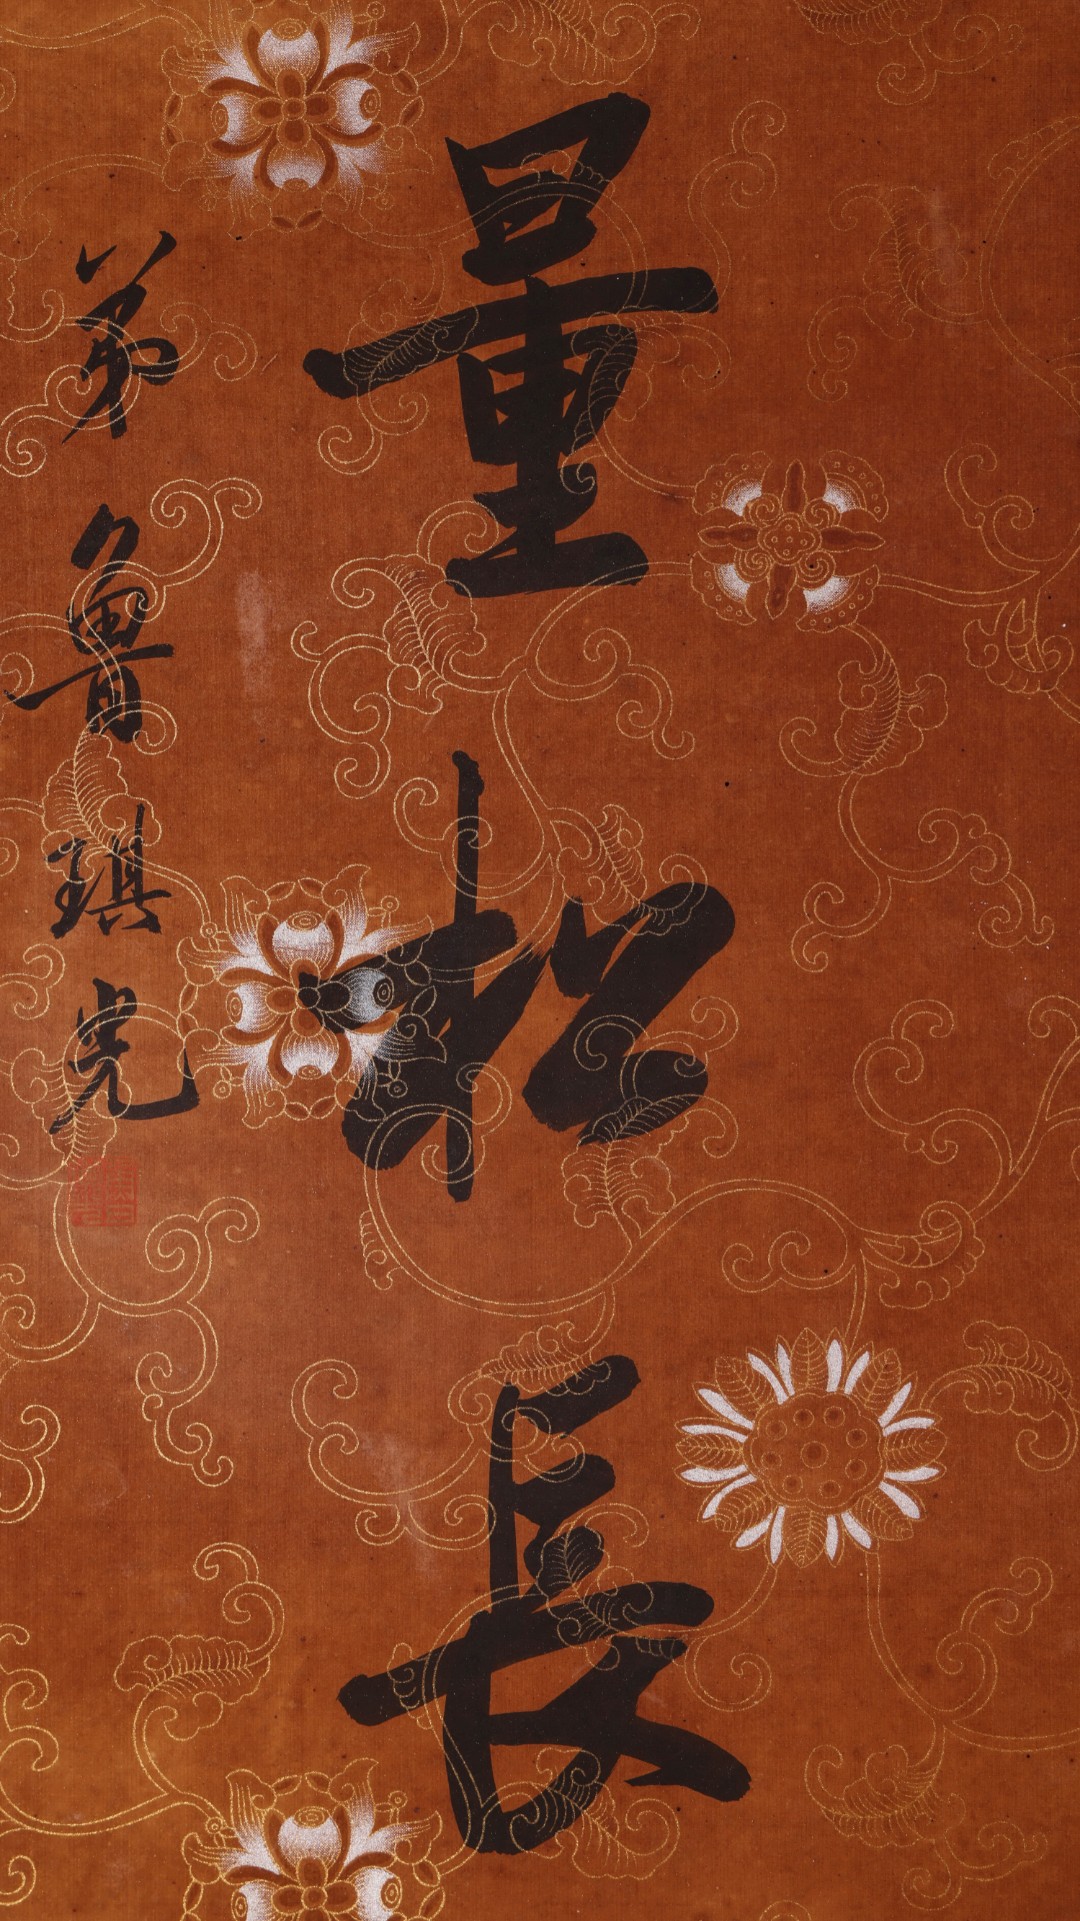 量松長
弟魯琪光